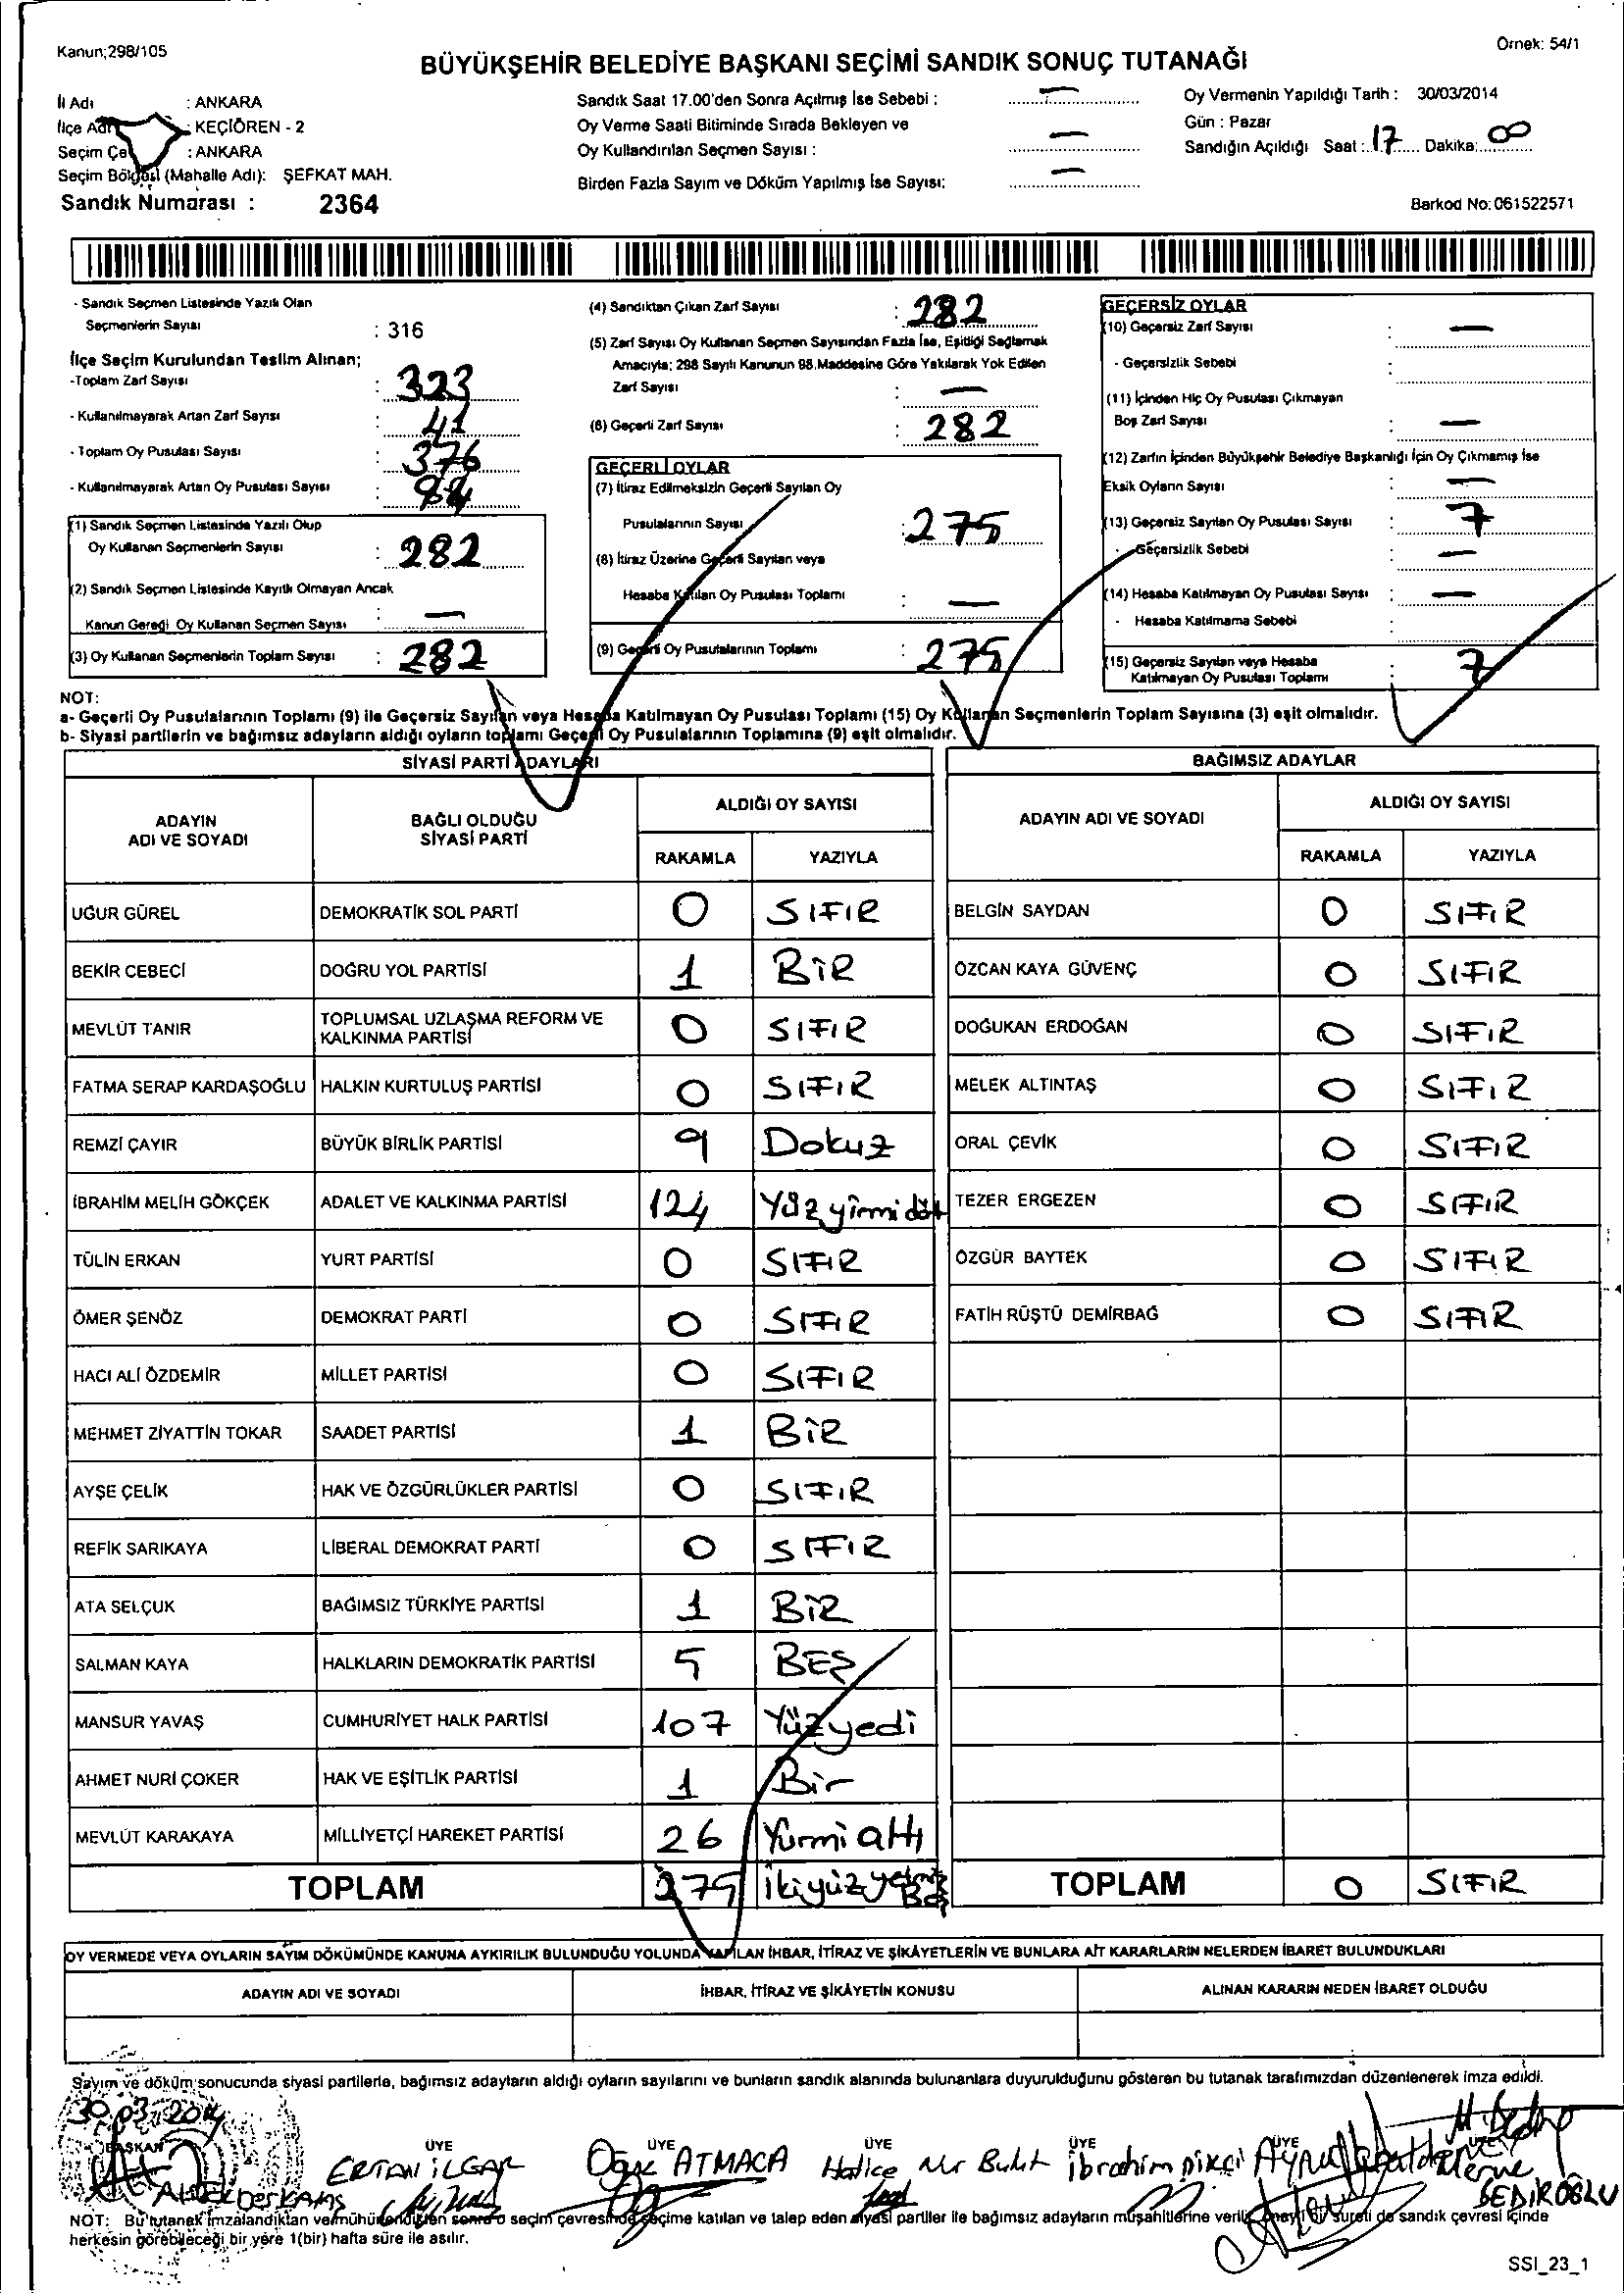 Kanun;298/105
Örnek: 54/1
BÜYÜKŞEHİR BELEDİYE BAŞKANI SEÇİMİ SANDIK SONUÇ TUTANAĞI
İl Adı : ANKARA
İlçe Adı : KEÇİÖREN - 2
Seçim Çe : ANKARA
Seçim Bölgesi (Mahalle Adı): ŞEFKAT MAH.
Sandık Numarası : 2364
Sandık Saat 17.00'den Sonra Açılmış İse Sebebi : —
Oy Verme Saati Bitiminde Sırada Bekleyen ve
Oy Kullandırılan Seçmen Sayısı : —
Birden Fazla Sayım ve Döküm Yapılmış İse Sayısı: —
Oy Vermenin Yapıldığı Tarih : 30/03/2014
Gün : Pazar
Sandığın Açıldığı Saat : 17 Dakika: 00
Barkod No: 061522571
- Sandık Seçmen Listesinde Yazılı Olan
Seçmenlerin Sayısı : 316
İlçe Seçim Kurulundan Teslim Alınan;
-Toplam Zarf Sayısı : 323
- Kullanılmayarak Artan Zarf Sayısı : 41
- Toplam Oy Pusulası Sayısı : 376
- Kullanılmayarak Artan Oy Pusulası Sayısı :
(1) Sandık Seçmen Listesinde Yazılı Olup
Oy Kullanan Seçmenlerin Sayısı : 282
(2) Sandık Seçmen Listesinde Kayıtlı Olmayan Ancak
Kanun Gereği Oy Kullanan Seçmen Sayısı : —
(3) Oy Kullanan Seçmenlerin Toplam Sayısı : 282
(4) Sandıktan Çıkan Zarf Sayısı : 282
(5) Zarf Sayısı Oy Kullanan Seçmen Sayısından Fazla İse, Eşitliği Sağlamak
Amacıyla; 298 Sayılı Kanunun 98.Maddesine Göre Yakılarak Yok Edilen
Zarf Sayısı : —
(6) Geçerli Zarf Sayısı : 282
GEÇERLİ OYLAR
(7) İtiraz Edilmeksizin Geçerli Sayılan Oy
Pusulalarının Sayısı : 275
(8) İtiraz Üzerine Geçerli Sayılan veya
Hesaba Katılan Oy Pusulası Toplamı : —
(9) Geçerli Oy Pusulalarının Toplamı : 275
GEÇERSİZ OYLAR
(10) Geçersiz Zarf Sayısı : —
- Geçersizlik Sebebi :
(11) İçinden Hiç Oy Pusulası Çıkmayan
Boş Zarf Sayısı : —
(12) Zarfın İçinden Büyükşehir Belediye Başkanlığı İçin Oy Çıkmamış İse
Eksik Oyların Sayısı : —
(13) Geçersiz Sayılan Oy Pusulası Sayısı : 7
- Geçersizlik Sebebi : —
(14) Hesaba Katılmayan Oy Pusulası Sayısı : —
- Hesaba Katılmama Sebebi :
(15) Geçersiz Sayılan veya Hesaba
Katılmayan Oy Pusulası Toplamı : 7
NOT:
a- Geçerli Oy Pusulalarının Toplamı (9) ile Geçersiz Sayılan veya Hesaba Katılmayan Oy Pusulası Toplamı (15) Oy Kullanan Seçmenlerin Toplam Sayısına (3) eşit olmalıdır.
b- Siyasi partilerin ve bağımsız adayların aldığı oyların toplamı Geçerli Oy Pusulalarının Toplamına (9) eşit olmalıdır.
SİYASİ PARTİ ADAYLARI
ADAYIN ADI VE SOYADI BAĞLI OLDUĞU SİYASİ PARTİ ALDIĞI OY SAYISI RAKAMLA YAZIYLA
UĞUR GÜREL DEMOKRATİK SOL PARTİ 0 SIFIR
BEKİR CEBECİ DOĞRU YOL PARTİSİ 1 BİR
MEVLÜT TANIR TOPLUMSAL UZLAŞMA REFORM VE KALKINMA PARTİSİ 0 SIFIR
FATMA SERAP KARDAŞOĞLU HALKIN KURTULUŞ PARTİSİ 0 SIFIR
REMZİ ÇAYIR BÜYÜK BİRLİK PARTİSİ 9 Dokuz
İBRAHİM MELİH GÖKÇEK ADALET VE KALKINMA PARTİSİ 124 Yüz yirmi dört
TÜLİN ERKAN YURT PARTİSİ 0 SIFIR
ÖMER ŞENÖZ DEMOKRAT PARTİ 0 SIFIR
HACI ALİ ÖZDEMİR MİLLET PARTİSİ 0 SIFIR
MEHMET ZİYATTİN TOKAR SAADET PARTİSİ 1 BİR
AYŞE ÇELİK HAK VE ÖZGÜRLÜKLER PARTİSİ 0 SIFIR
REFİK SARIKAYA LİBERAL DEMOKRAT PARTİ 0 SIFIR
ATA SELÇUK BAĞIMSIZ TÜRKİYE PARTİSİ 1 BİR
SALMAN KAYA HALKLARIN DEMOKRATİK PARTİSİ 5 BEŞ
MANSUR YAVAŞ CUMHURİYET HALK PARTİSİ 107 Yüz yedi
AHMET NURİ ÇOKER HAK VE EŞİTLİK PARTİSİ 1 Bir
MEVLÜT KARAKAYA MİLLİYETÇİ HAREKET PARTİSİ 26 Yirmi altı
TOPLAM 275 İkiyüz yetmiş Beş
BAĞIMSIZ ADAYLAR
ADAYIN ADI VE SOYADI ALDIĞI OY SAYISI RAKAMLA YAZIYLA
BELGİN SAYDAN 0 SIFIR
ÖZCAN KAYA GÜVENÇ 0 SIFIR
DOĞUKAN ERDOĞAN 0 SIFIR
MELEK ALTINTAŞ 0 SIFIR
ORAL ÇEVİK 0 SIFIR
TEZER ERGEZEN 0 SIFIR
ÖZGÜR BAYTEK 0 SIFIR
FATİH RÜŞTÜ DEMİRBAĞ 0 SIFIR
TOPLAM 0 SIFIR
OY VERMEDE VEYA OYLARIN SAYIM DÖKÜMÜNDE KANUNA AYKIRILIK BULUNDUĞU YOLUNDA YAPILAN İHBAR, İTİRAZ VE ŞİKÂYETLERİN VE BUNLARA AİT KARARLARIN NELERDEN İBARET BULUNDUKLARI
ADAYIN ADI VE SOYADI İHBAR, İTİRAZ VE ŞİKÂYETİN KONUSU ALINAN KARARIN NEDEN İBARET OLDUĞU
Sayım ve döküm sonucunda siyasi partilerle, bağımsız adayların aldığı oyların sayılarını ve bunların sandık alanında bulunanlara duyurulduğunu gösteren bu tutanak tarafımızdan düzenlenerek imza edildi.
30.03.2014
BAŞKAN ÜYE ÜYE ÜYE ÜYE ÜYE ÜYE
ERTAN İLGAR
ATMACA
Hatice
İbrahim
Merve
BEDİROĞLU
NOT: Bu tutanak imzalandıktan ve mühürlendikten sonra o seçim çevresinde seçime katılan ve talep eden siyasi partiler ile bağımsız adayların müşahitlerine verilir, onaylı bir sureti de sandık çevresi içinde
herkesin görebileceği bir yere 1(bir) hafta süre ile asılır.
SSI_23_1